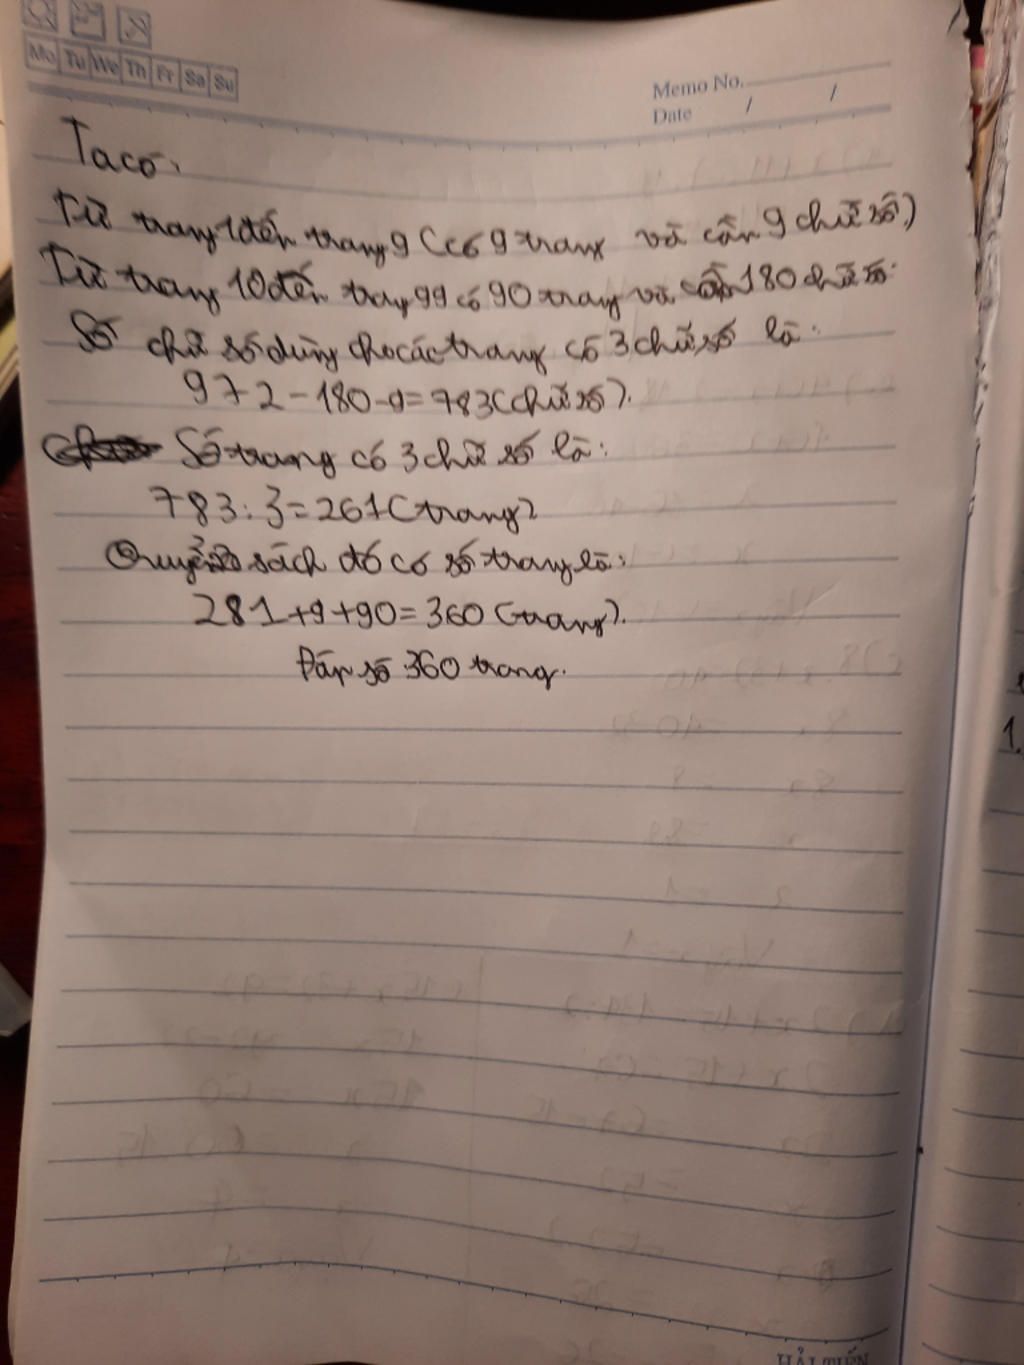 Mo Tu We Th Fr Sa Su
Memo No.
Date / /
Ta có:
Từ trang 1 đến trang 9 (có 9 trang và cần 9 chữ số)
Từ trang 10 đến trang 99 có 90 trang và cần 180 chữ số.
Số chữ số dùng cho các trang có 3 chữ số là:
972-180-9=783(chữ số).
Số trang có 3 chữ số là:
783:3=261(trang)
Quyển sách đó có số trang là:
281+9+90=360(trang).
Đáp số 360 trang.
1.
HẢI TIẾN